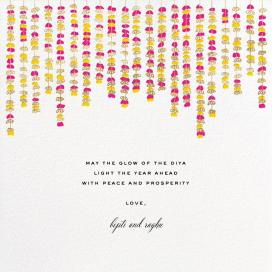 MAY THE GLOW OF THE DIYA
LIGHT THE YEAR AHEAD
WITH PEACE AND PROSPERITY
LOVE,
and